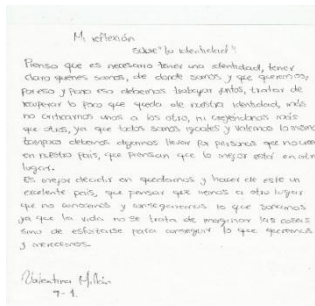 Mi reflexión
sobre "la identidad"
Pienso que es necesario tener una identidad, tener
claro quienes somos, de donde somos y que queremos,
por eso y para eso debemos trabajar juntos, tratar de
recuperar lo poco que queda de nuestra identidad, más
no criticarnos unos a los otro, ni creyéndonos más
que otros, ya que todos somos iguales y valemos lo mismo
tampoco debemos dejarnos llevar por personas que no creen
en nuestro país, que piensan que lo mejor está en otro
lugar.
Es mejor decidir en quedarnos y hacer de este un
excelente país, que pensar que iremos a otro lugar
que no conocemos y conseguiremos lo que soñamos
ya que la vida no se trata de marginar las cosas
sino de esforzarse para conseguir lo que queremos
y merecemos.
Valentina Millán
9-1.